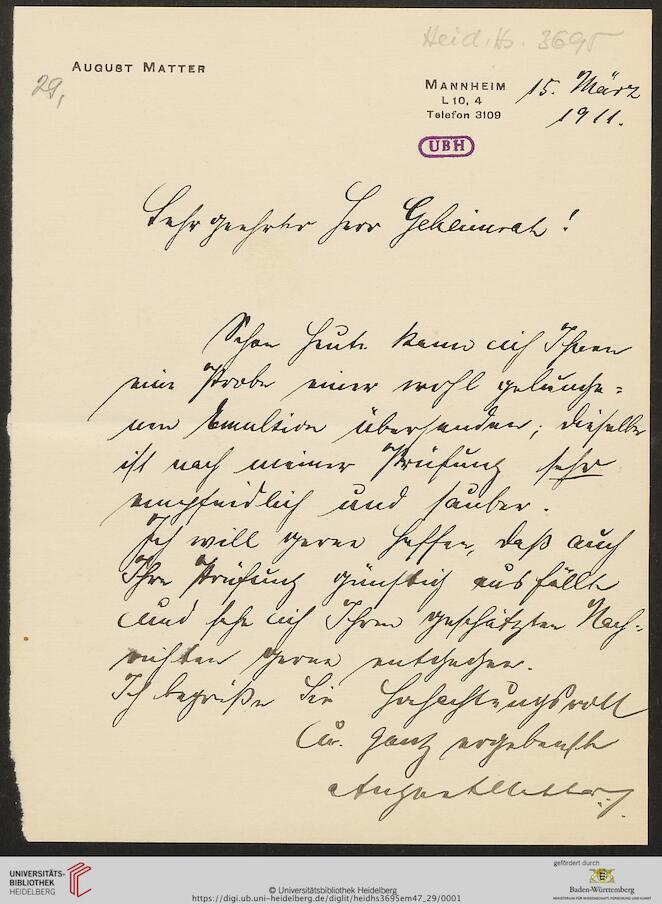 Heid. Hs. 3695
AUGUST MATTER
29,
MANNHEIM
L 10, 4
Telefon 3109
15. März
1911.
UBH
Sehr geehrter Herr Geheimrat!
Schon heute kann ich Ihnen
eine Probe einer wohl gelunge=
nen Emulsion übersenden; dieselbe
ist nach meiner Prüfung sehr
empfindlich und sauber.
Ich will gerne hoffen, daß auch
Ihre Prüfung günstig ausfällt
und sehe ich Ihren geschätzten Nach=
richten gerne entgegen.
Ich begrüße Sie hochachtungsvoll
ganz ergebenst
August Matter.
UNIVERSITÄTS-
BIBLIOTHEK
HEIDELBERG
© Universitätsbibliothek Heidelberg
https://digi.ub.uni-heidelberg.de/diglit/heidhs3695em47_29/0001
gefördert durch
Baden-Württemberg
MINISTERIUM FÜR WISSENSCHAFT, FORSCHUNG UND KUNST